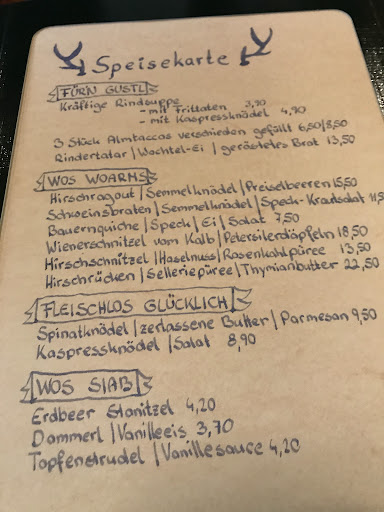 Speisekarte
FÜR'N GUSTL
Kräftige Rindsuppe
- mit Frittaten 3,90
- mit Kaspressknödel 4,90
3 Stück Almtaccos verschieden gefüllt 6,50/8,50
Rindertatar | Wachtel-Ei | geröstetes Brot 13,50
WOS WOARMS
Hirschragout | Semmelknödel | Preiselbeeren 15,50
Schweinsbraten | Semmelknödel | Speck-Krautsalat 11,5
Bauernquiche | Speck | Ei | Salat 7,50
Wienerschnitzel vom Kalb | Petersilerdäpfeln 18,50
Hirschschnitzel | Haselnuss | Rosenkohlpüree 13,50
Hirschrücken | Selleriepüree | Thymianbutter 22,50
FLEISCHLOS GLÜCKLICH
Spinatknödel | zerlassene Butter | Parmesan 9,50
Kaspressknödel | Salat 8,90
WOS SIAß
Erdbeer Stanitzel 4,20
Dammerl | Vanilleeis 3,70
Topfenstrudel | Vanillesauce 4,20